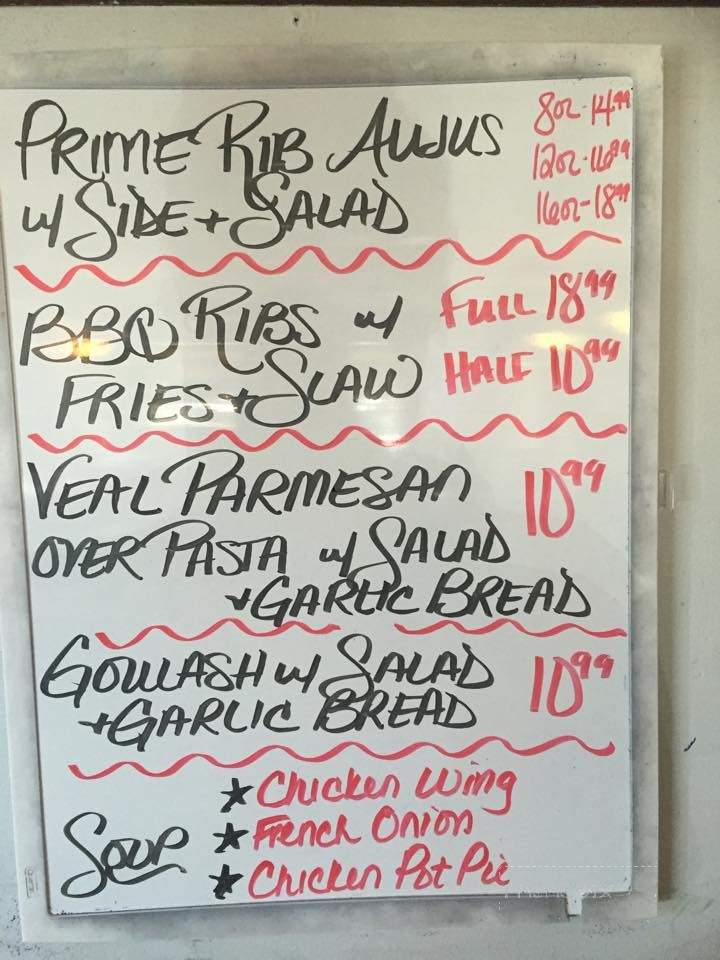 PRIME RIB AUJUS 8oz-14.99
12oz-16.99
w/ SIDE + SALAD 16oz-18.99
BBQ RIBS w/ FULL 18.99
FRIES + SLAW HALF 10.99
VEAL PARMESAN 10.99
OVER PASTA w/ SALAD
+ GARLIC BREAD
GOULASH w/ SALAD 10.99
+ GARLIC BREAD
SOUP ★ Chicken Wing
★ French Onion
★ Chicken Pot Pie